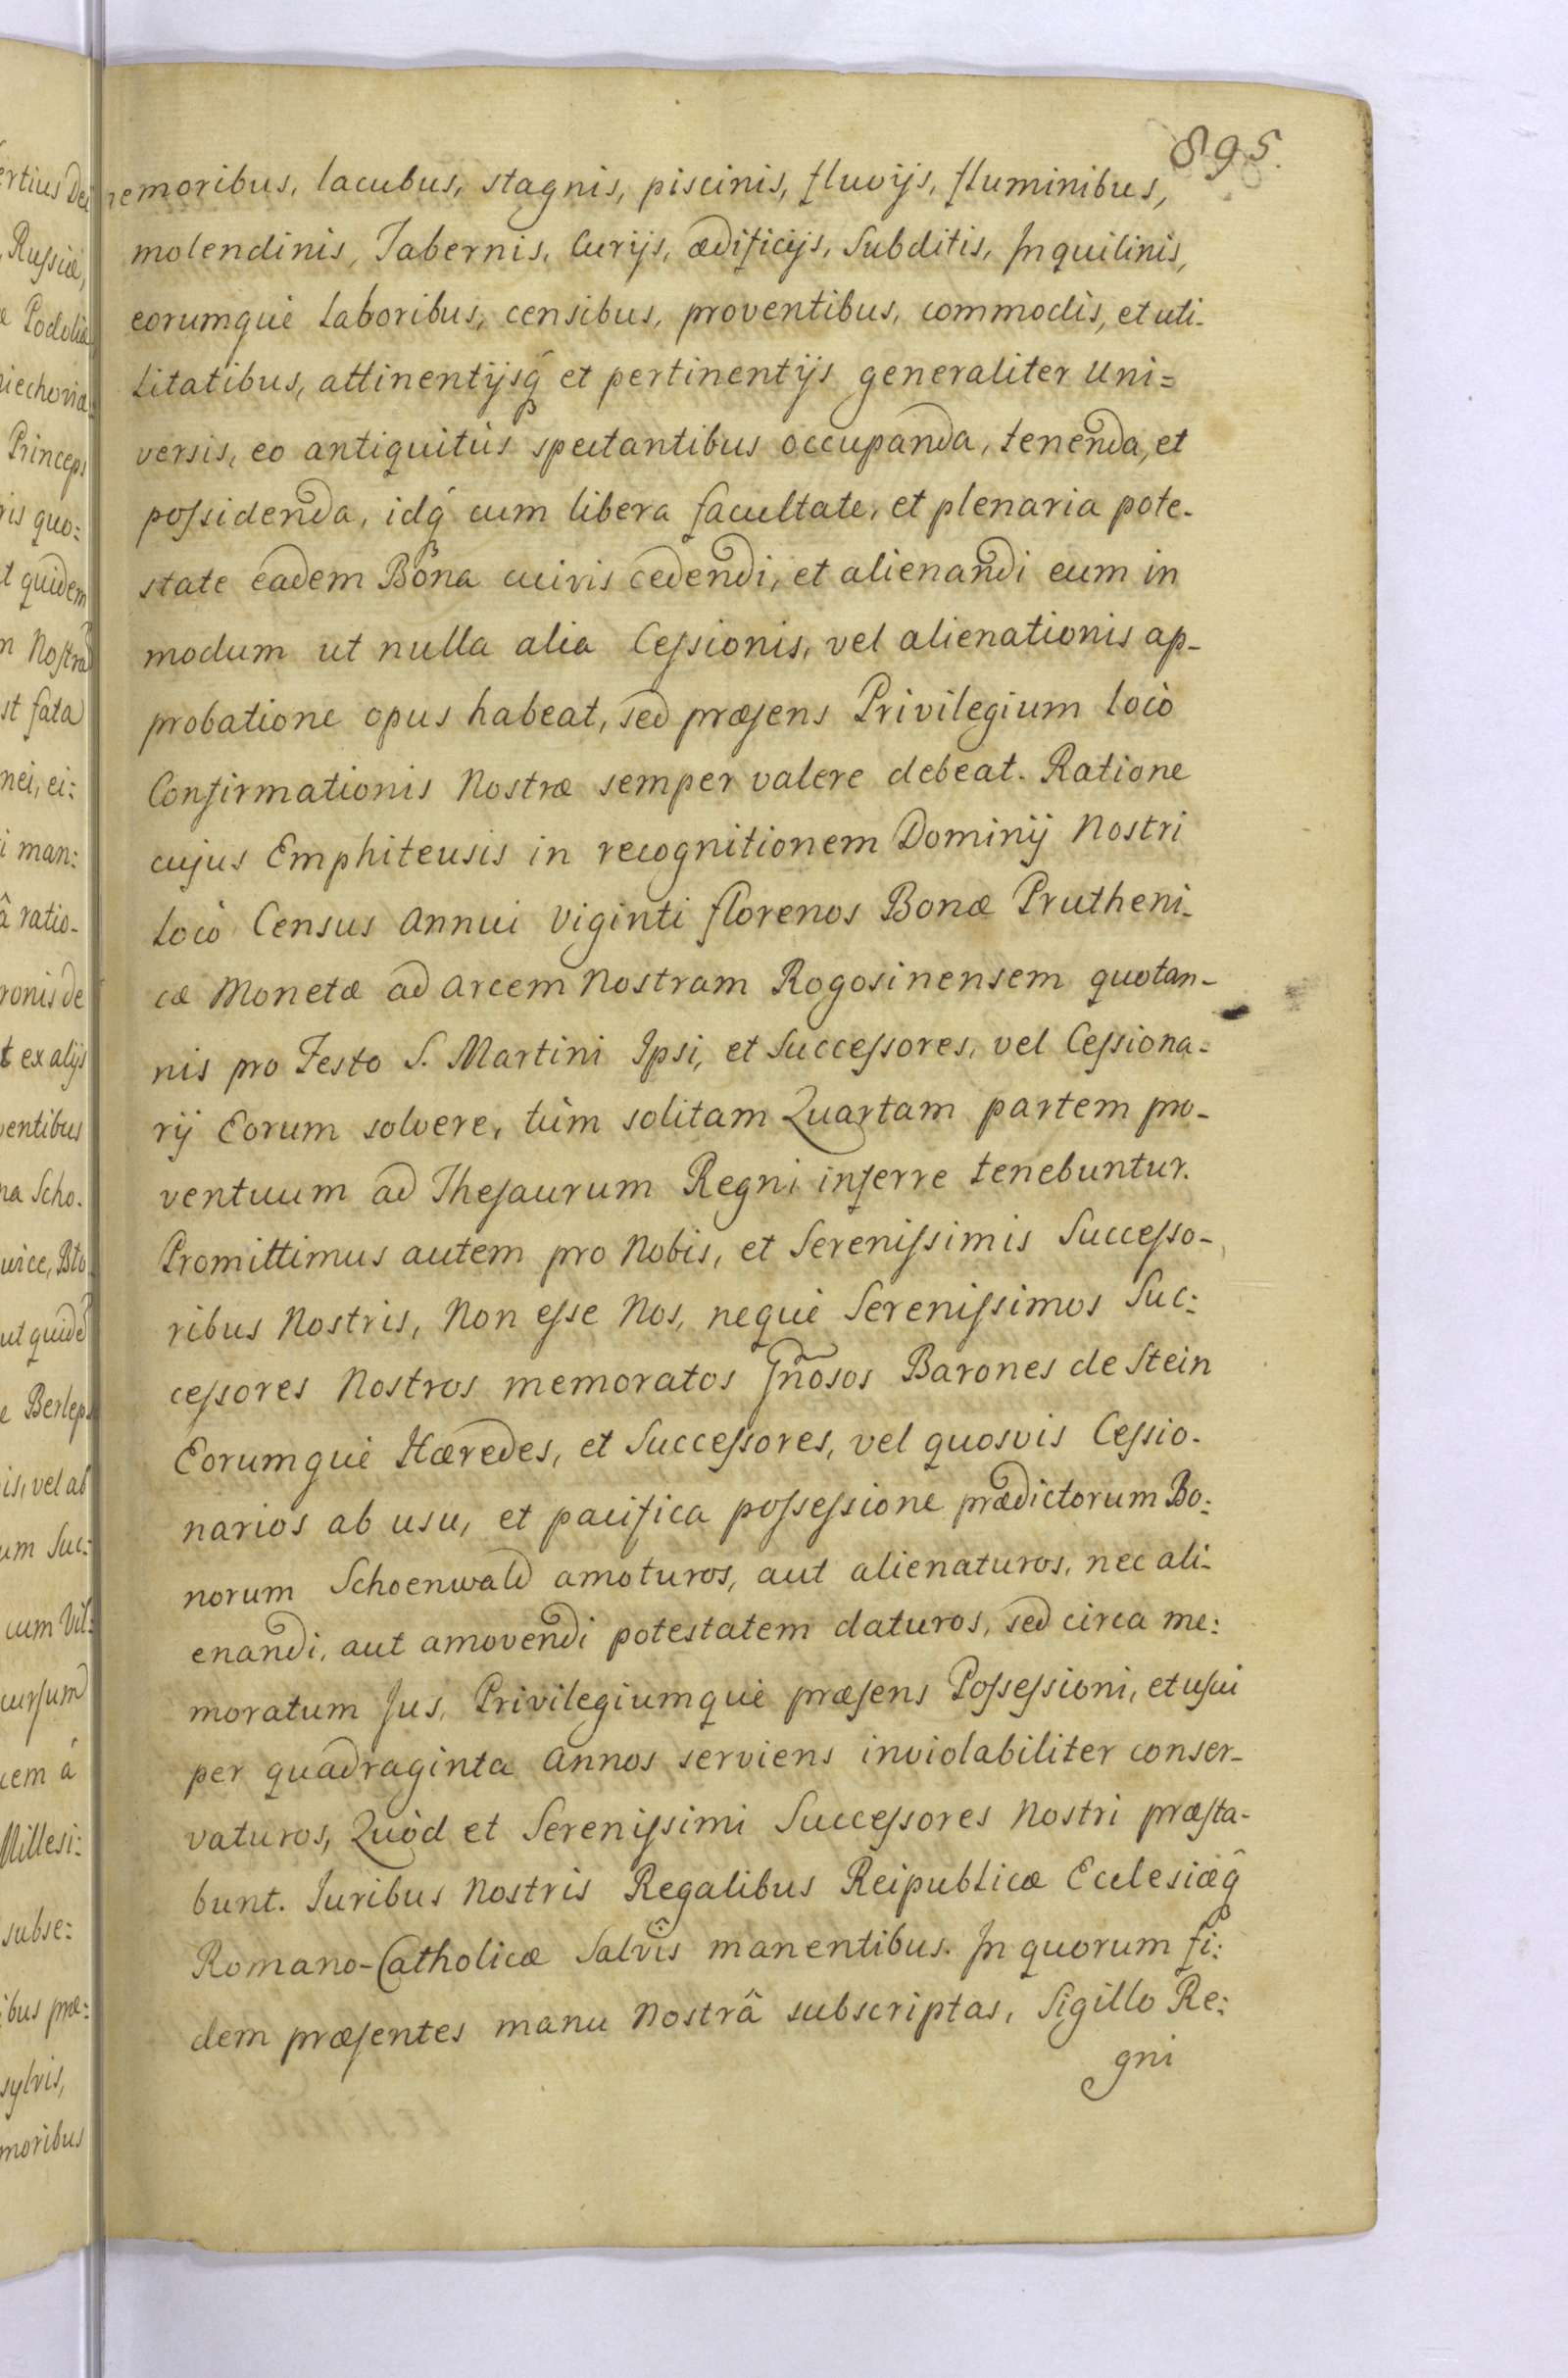 895.
nemoribus, lacubus, stagnis, piscinis, fluvijs, fluminibus,
molendinis, Tabernis, Curijs, ædificijs, Subditis, Inquilinis,
eorumquè laboribus, censibus, proventibus, commodis, et uti-
litatibus, attinentijsq́ et pertinentijs generaliter Uni=
versis, eo antiquitùs spectantibus occupanda, tenenda, et
poſsidenda, idq́ cum libera facultate, et plenaria pote-
state eadem Bona cuivis cedendi, et alienandi eum in
modum ut nulla alia Ceſsionis, vel alienationis ap-
probatione opus habeat, sed præſens Privilegium locò
Confirmationis Nostræ semper valere debeat. Ratione
cujus Emphiteusis in recognitionem Dominij Nostri
locò Census Annui Viginti florenos Bonæ Prutheni-
cæ Monetæ ad Arcem Nostram Rogosinensem quotan-
nis pro Festo S. Martini Ipsi, et Succeſsores, vel Ceſsiona-
rij Eorum solvere, tùm solitam Quartam partem pro-
ventuum ad Theſaurum Regni inferre tenebuntur.
Promittimus autem pro Nobis, et Sereniſsimis Succeſso-
ribus Nostris, Non eſse Nos, nequè Sereniſsimos Suc:
ceſsores Nostros memoratos Gñosos Barones de Stein
Eorumquè Hæredes, et Succeſsores, vel quosvis Ceſsio-
narios ab usu, et pacifica poſseſsione prædictorum Bo:
norum Schoenwald amoturos, aut alienaturos, nec ali-
enandi, aut amovendi potestatem daturos, sed circa me:
moratum Jus, Privilegiumquè præſens Poſseſsioni, et uſui
per quadraginta Annos serviens inviolabiliter conser-
vaturos, Quòd et Sereniſsimi Succeſsores Nostri præſta-
bunt. Juribus Nostris Regalibus Reipublicæ Ecclesiæq́
Romano-Catholicæ Salvis manentibus. In quorum fi:
dem præſentes manu Nostrâ subscriptas, Sigillo Re:
gni
ertius Dei
Ruſsiæ,
Podoliæ
niechoviæ
Princeps
ris quo:
t quidem
m Nostra
st fata
nei, ei:
i man:
â ratio-
ronis de
t ex alijs
ventibus
na Scho.
ut quidē
e Berleps
is, vel ab
um Suc:
cum Vil:
curſum
cem â
Milleſi:
subse:
ibus præ:
sylvis,
moribus